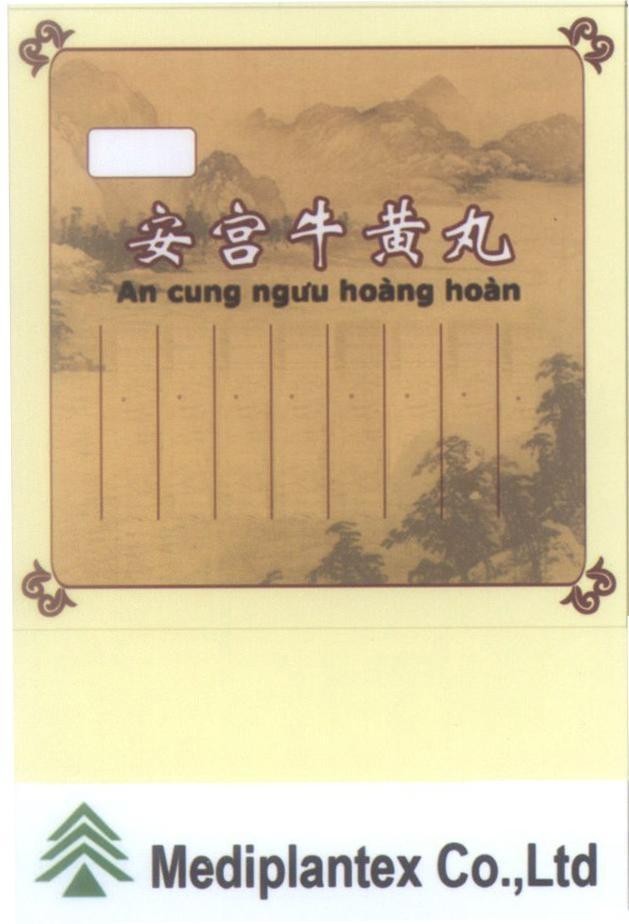 安宫牛黄丸
An cung ngưu hoàng hoàn
Mediplantex Co.,Ltd